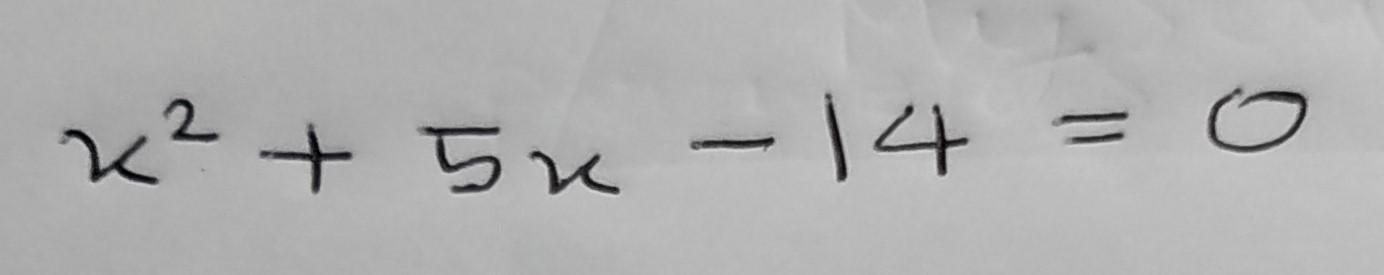 x² + 5x - 14 = 0